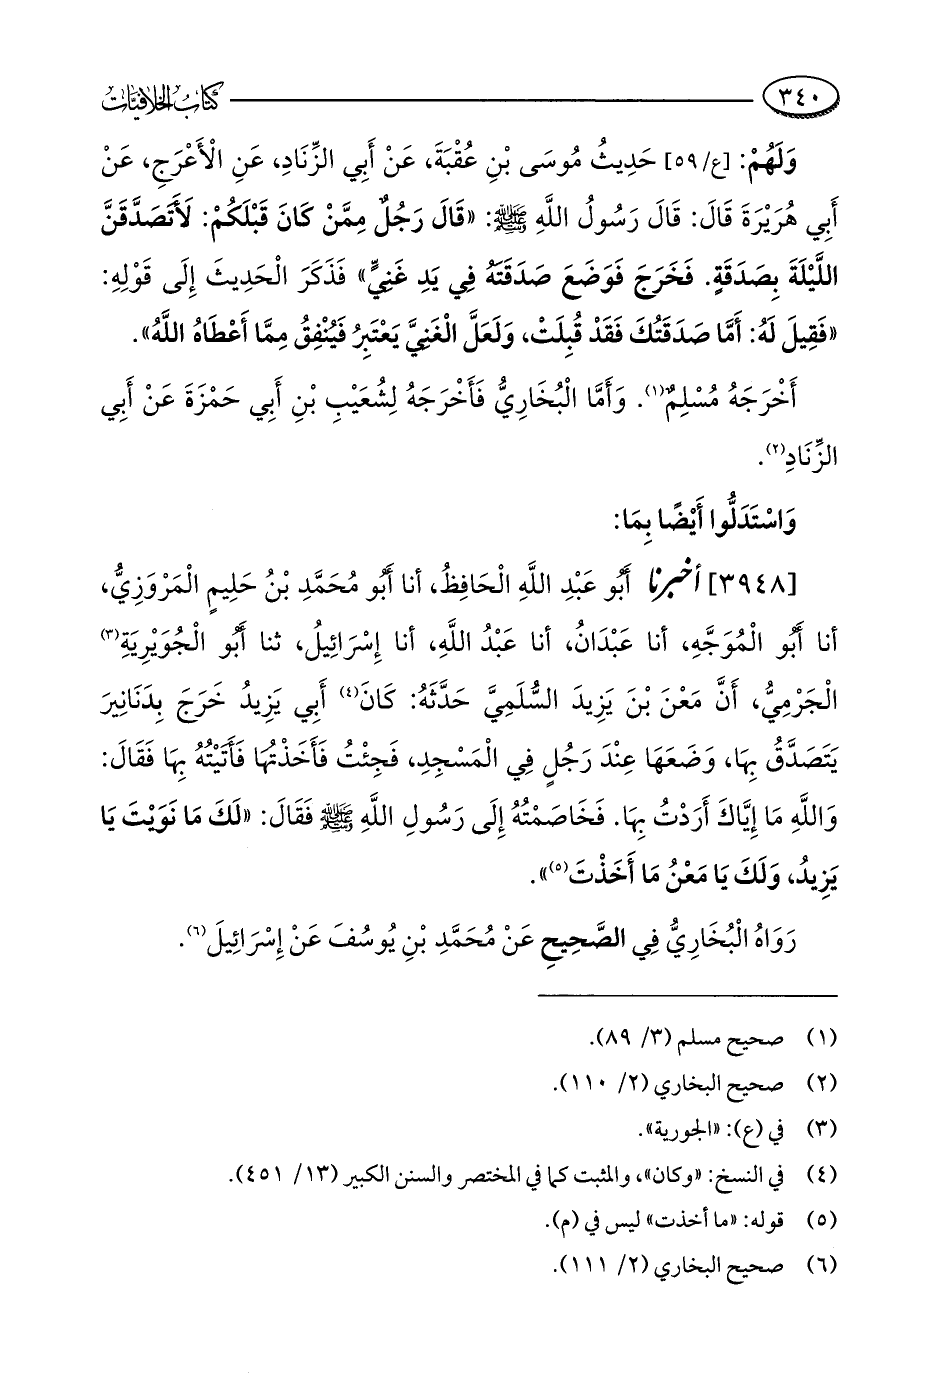 ٣٤٠ كتاب الخلافيات
وَلَهُمْ: [ع/٥٩] حَدِيثُ مُوسَى بْنِ عُقْبَةَ، عَنْ أَبِي الزِّنَادِ، عَنِ الْأَعْرَجِ، عَنْ
أَبِي هُرَيْرَةَ قَالَ: قَالَ رَسُولُ اللَّهِ ﷺ: «قَالَ رَجُلٌ مِمَّنْ كَانَ قَبْلَكُمْ: لَأَتَصَدَّقَنَّ
اللَّيْلَةَ بِصَدَقَةٍ. فَخَرَجَ فَوَضَعَ صَدَقَتَهُ فِي يَدِ غَنِيٍّ» فَذَكَرَ الْحَدِيثَ إِلَى قَوْلِهِ:
«فَقِيلَ لَهُ: أَمَّا صَدَقَتُكَ فَقَدْ قُبِلَتْ، وَلَعَلَّ الْغَنِيَّ يَعْتَبِرُ فَيُنْفِقُ مِمَّا أَعْطَاهُ اللَّهُ».
أَخْرَجَهُ مُسْلِمٌ(١). وَأَمَّا الْبُخَارِيُّ فَأَخْرَجَهُ لِشُعَيْبِ بْنِ أَبِي حَمْزَةَ عَنْ أَبِي
الزِّنَادِ(٢).
وَاسْتَدَلُّوا أَيْضًا بِمَا:
[٣٩٤٨] أخبرنا أَبُو عَبْدِ اللَّهِ الْحَافِظُ، أنا أَبُو مُحَمَّدِ بْنُ حَلِيمٍ الْمَرْوَزِيُّ،
أنا أَبُو الْمُوَجَّهِ، أنا عَبْدَانُ، أنا عَبْدُ اللَّهِ، أنا إِسْرَائِيلُ، ثنا أَبُو الْجُوَيْرِيَةِ(٣)
الْجَرْمِيُّ، أَنَّ مَعْنَ بْنَ يَزِيدَ السُّلَمِيَّ حَدَّثَهُ: كَانَ(٤) أَبِي يَزِيدُ خَرَجَ بِدَنَانِيرَ
يَتَصَدَّقُ بِهَا، وَضَعَهَا عِنْدَ رَجُلٍ فِي الْمَسْجِدِ، فَجِئْتُ فَأَخَذْتُهَا فَأَتَيْتُهُ بِهَا فَقَالَ:
وَاللَّهِ مَا إِيَّاكَ أَرَدْتُ بِهَا. فَخَاصَمْتُهُ إِلَى رَسُولِ اللَّهِ ﷺ فَقَالَ: «لَكَ مَا نَوَيْتَ يَا
يَزِيدُ، وَلَكَ يَا مَعْنُ مَا أَخَذْتَ(٥)».
رَوَاهُ الْبُخَارِيُّ فِي الصَّحِيحِ عَنْ مُحَمَّدِ بْنِ يُوسُفَ عَنْ إِسْرَائِيلَ(٦).
(١) صحيح مسلم (٣/ ٨٩).
(٢) صحيح البخاري (٢/ ١١٠).
(٣) في (ع): «الجورية».
(٤) في النسخ: «وكان»، والمثبت كما في المختصر والسنن الكبير (١٣/ ٤٥١).
(٥) قوله: «ما أخذت» ليس في (م).
(٦) صحيح البخاري (٢/ ١١١).